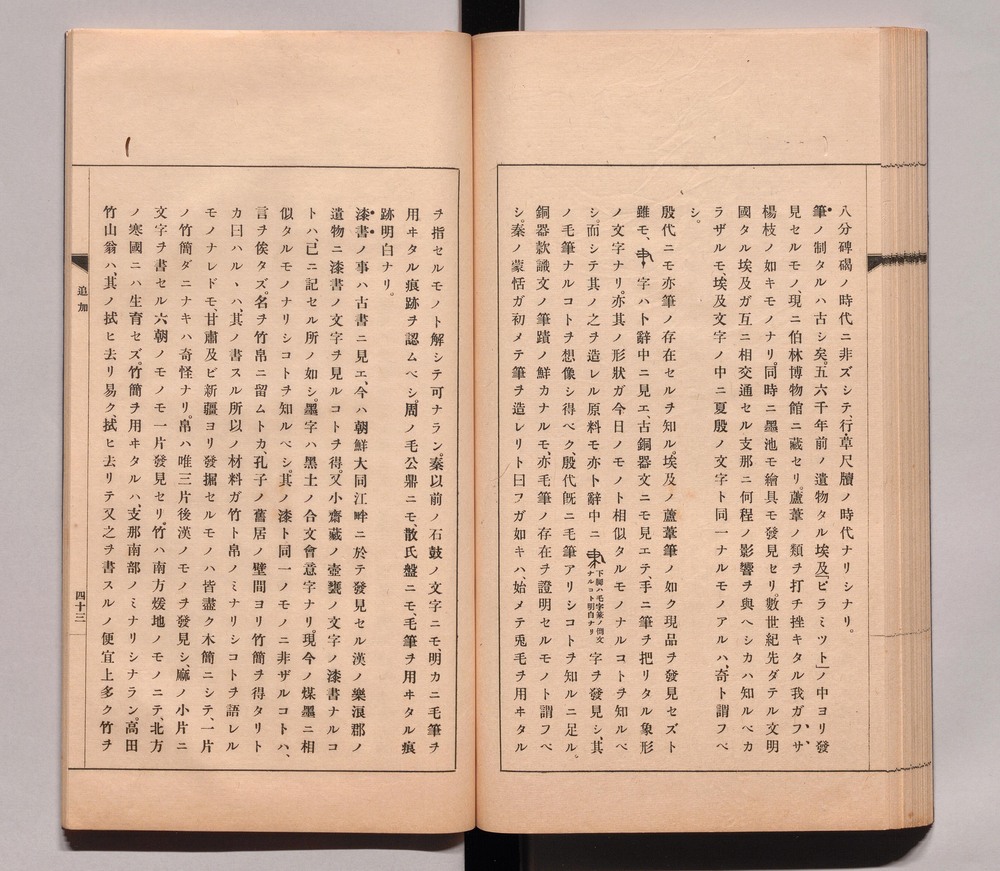 八分碑碣ノ時代ニ非ズシテ、行草尺牘ノ時代ナリシナリ。
筆ノ制タルハ古シ矣。五六千年前ノ遺物タル埃及「ピラミツト」ノ中ヨリ發
見セルモノ、現ニ伯林博物館ニ藏セリ。蘆葦ノ類ヲ打チ挫キタル我ガフサ、
楊枝ノ如キモノナリ。同時ニ墨池モ繪具モ發見セリ。數世紀先ダテル文明
國タル埃及ガ互ニ相交通セル支那ニ何程ノ影響ヲ與ヘシカハ知ルベカ
ラザルモ、埃及文字ノ中ニ夏殷ノ文字ト同一ナルモノアルハ、奇ト謂フベ
シ。
殷代ニモ亦筆ノ存在セルヲ知ル。埃及ノ蘆葦筆ノ如ク現品ヲ發見セズト
雖モ、字ハト辭中ニ見エ、古銅器文ニモ見エテ、手ニ筆ヲ把リタル象形
ノ文字ナリ。亦其ノ形狀ガ今日ノモノト相似タルモノナルコトヲ知ルベ
シ。而シテ其ノ之ヲ造レル原料モ亦ト辭中ニ下脚ハ毛字篆ノ倒文ナルコト明白ナリ字ヲ發見シ、其
ノ毛筆ナルコトヲ想像シ得ベク、殷代既ニ毛筆アリシコトヲ知ルニ足ル。
銅器款識文ノ筆蹟ノ鮮カナルモ、亦毛筆ノ存在ヲ證明セルモノト謂フベ
シ。秦ノ蒙恬ガ初メテ筆ヲ造レリト曰フガ如キハ、始メテ兎毛ヲ用ヰタル
ヲ指セルモノト解シテ可ナラン。秦以前ノ石鼓ノ文字ニモ、明カニ毛筆ヲ
用ヰタル痕跡ヲ認ムベシ。周ノ毛公鼎ニモ散氏盤ニモ、毛筆ヲ用ヰタル痕
跡明白ナリ。
漆書ノ事ハ古書ニ見エ、今ハ朝鮮大同江畔ニ於テ發見セル漢ノ樂浪郡ノ
遺物ニ漆書ノ文字ヲ見ルコトヲ得。又小齋藏ノ壺甕ノ文字ノ漆書ナルコ
トハ、已ニ記セル所ノ如シ。墨字ハ黑土ノ合文會意字ナリ。現今ノ煤墨ニ相
似タルモノナリシコトヲ知ルベシ。其ノ漆ト同一ノモノニ非ザルコトハ、
言ヲ俟タズ。名ヲ竹帛ニ留ムトカ、孔子ノ舊居ノ壁間ヨリ竹簡ヲ得タリト
カ曰ハルヽハ、其ノ書スル所以ノ材料ガ竹ト帛ノミナリシコトヲ語レル
モノナレドモ、甘肅及ビ新疆ヨリ發掘セルモノハ皆盡ク木簡ニシテ、一片
ノ竹簡ダニナキハ奇怪ナリ。帛ハ唯三片後漢ノモノヲ發見シ、廱ノ小片ニ
文字ヲ書セル六朝ノモノモ一片發見セリ。竹ハ南方煖地ノモノニテ、北方
ノ寒國ニハ生育セズ。竹簡ヲ用ヰタルハ、支那南部ノミナリシナラン。高田
竹山翁ハ、其ノ拭ヒ去リ易ク、拭ヒ去リテ又之ヲ書スルノ便宜上多ク竹ヲ
追加
四十三